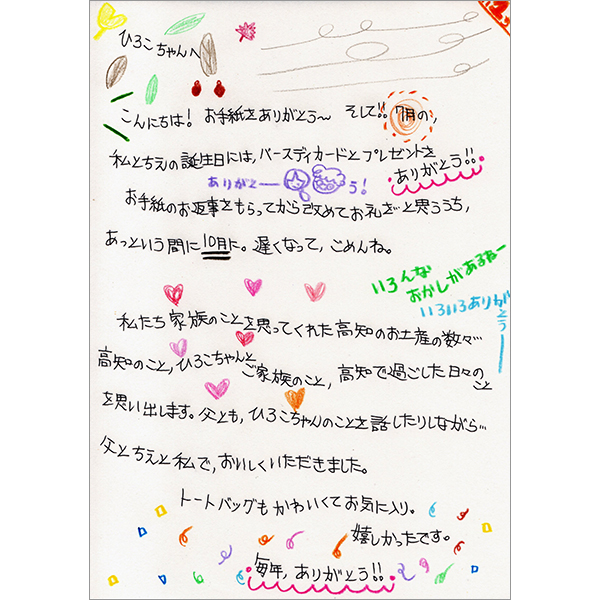 ひろこちゃんへ
こんにちは! お手紙をありがとう〜 そして!! 7月の,
私とちえの誕生日には,バースディカードとプレゼントを
ありがとう!!
ありがとーう!
お手紙のお返事をもらってから改めてお礼をと思ううち,
あっという間に10月に。遅くなって,ごめんね。
いろんな
おかしがあるねー
いろいろありがとうー
私たち家族のことを思ってくれた高知のお土産の数々…
高知のこと,ひろこちゃんとご家族のこと,高知で過ごした日々のこと
を思い出します。父とも,ひろこちゃんのことを話したりしながら…
父とちえと私で,おいしくいただきました。
トートバッグもかわいくてお気に入り。
嬉しかったです。
毎年,ありがとう!!